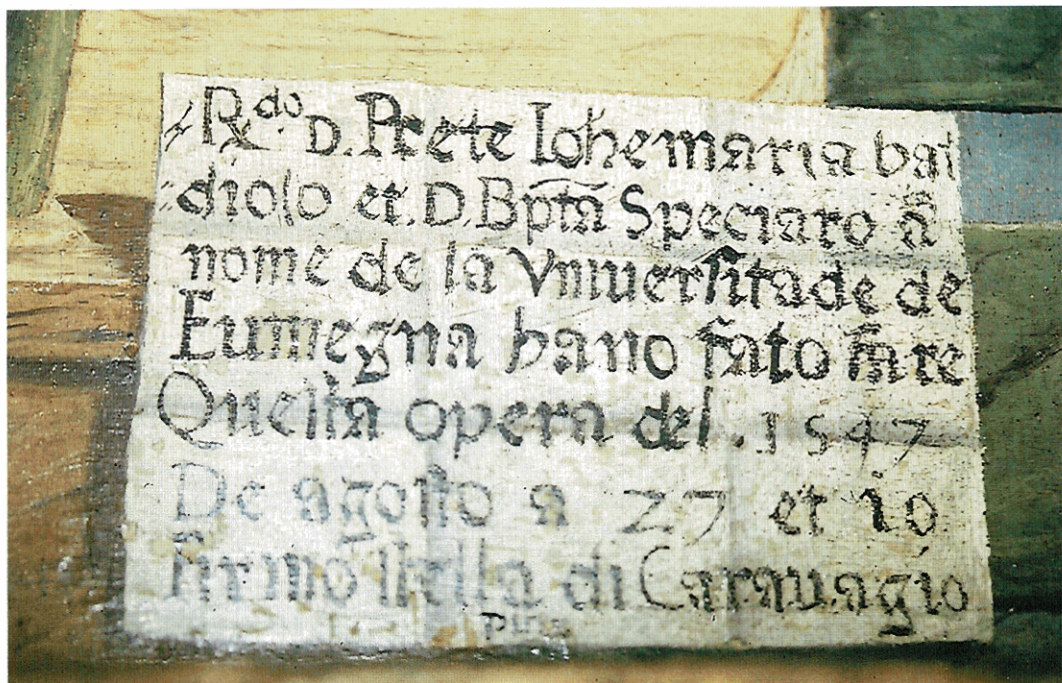 Rx.do D. Prete Iohemaria bai
diolo et. D. Bpta Speciaro a
nome de la Vniuersitade de
Fumegna hano fato fare
Questa opera del. 1547
De agosto a 27 et io
firmo stella di Carauagio
pin